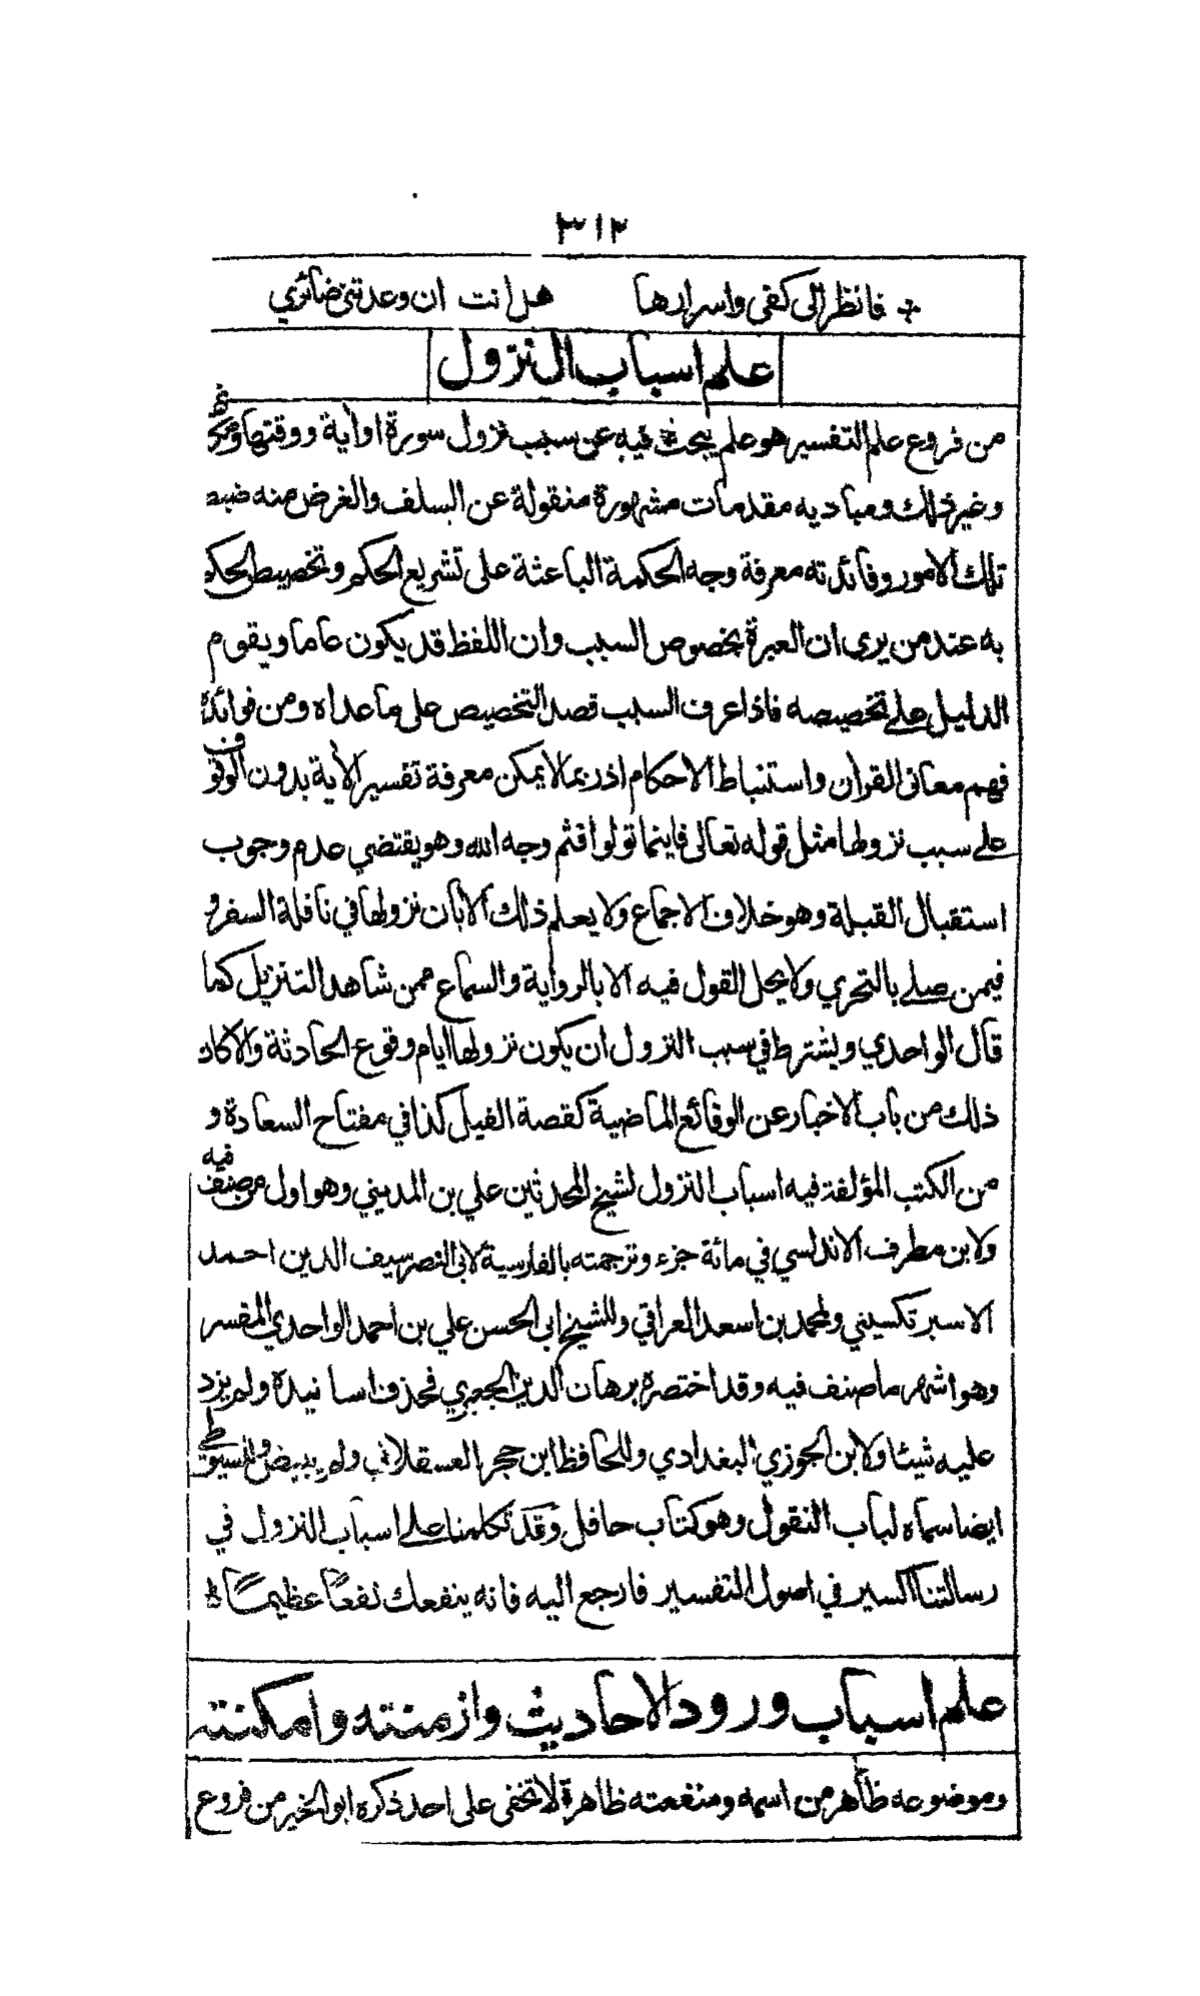 ٣١٢
فانظر الى كفى واسرارها هل انت ان وعدتنى ضائري
علم اسباب النزول
من فروع علم التفسير هو علم يبحث فيه عن سبب نزول سورة او أية ووقتها ومكانها
وغير ذلك ومباديه مقدمات مشهورة منقولة عن السلف والغرض منه ضبط
تلك الامور وفائدته معرفة وجه الحكمة الباعثة على تشريع الحكم وتخصيص الحكم
به عند من يرى ان العبرة بخصوص السبب وان اللفظ قد يكون عاما ويقوم
الدليل على تخصيصه فاذا عرف السبب قصد التخصيص على ما عداه ومن فوائده
فهم معانى القرأن واستنباط الاحكام اذ ربما لا يمكن معرفة تفسير الأية بدون الوقوف
على سبب نزولها مثل قوله تعالى فاينما تولوا فثم وجه الله وهو يقتضي عدم وجوب
استقبال القبلة وهو خلاف الاجماع ولا يعلم ذلك الا بان نزولها في نافلة السفر و
فيمن صلى بالتحري ولا يحل القول فيه الا بالرواية والسماع ممن شاهد التنزيل كما
قال الواحدي ويشترط في سبب النزول ان يكون نزولها ايام وقوع الحادثة والا كان
ذلك من باب الاخبار عن الوقائع الماضية كقصة الفيل كذا في مفتاح السعادة و
من الكتب المؤلفة فيه اسباب النزول لشيخ المحدثين علي بن المديني وهو اول من صنف فيه
ولابن مطرف الاندلسي في مائة جزء وترجمته بالفارسية لابى النصر سيف الدين احمد
الاسبرتكسيني ولمحمد بن اسعد العراقي وللشيخ ابى الحسن علي بن احمد الواحدي المفسر
وهو اشهر ما صنف فيه وقد اختصره برهان الدين الجعبري فحذف اسانيده ولم يزد
عليه شيئا ولابن الجوزي البغدادي وللحافظ ابن حجر العسقلاني ولم يبيض وللسيوطى
ايضا سماه لباب النقول وهو كتاب حافل وقد تكلمنا على اسباب النزول في
رسالتنا اكسير في اصول التفسير فارجع اليه فانه ينفعك نفعًا عظيمًا
علم اسباب ورود الاحاديث وازمنته وامكنته
وموضوعه ظاهر من اسمه ومنفعته ظاهرة لا تخفى على احد ذكره ابو الخير من فروع